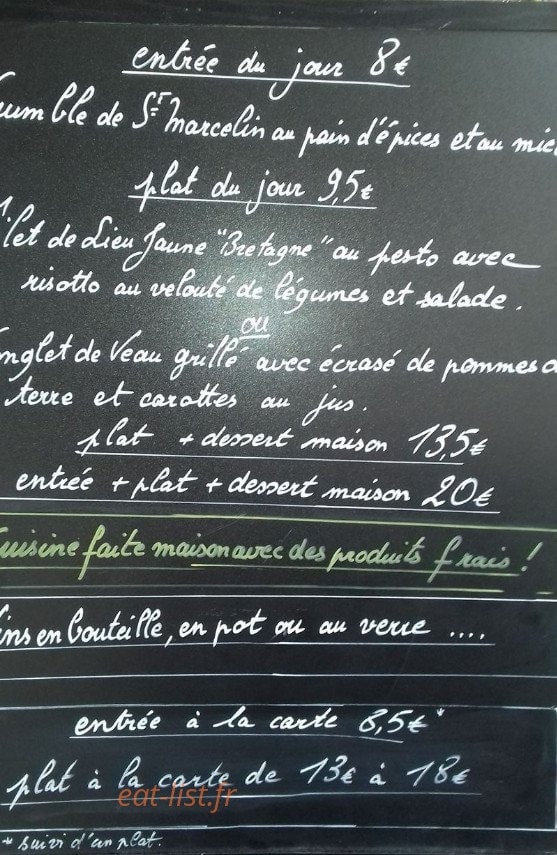 entrée du jour 8€
umble de St Marcelin au pain d'épices et au mie
plat du jour 9,5€
ilet de Lieu Jaune "Bretagne" au pesto avec
risotto au velouté de légumes et salade.
ou
nglet de Veau grillé avec écrasé de pommes d
terre et carottes au jus.
plat + dessert maison 13,5€
entrée + plat + dessert maison 20€
uisine faite maison avec des produits frais !
ins en bouteille, en pot ou au verre ....
entrée à la carte 8,5€*
plat à la carte de 13€ à 18€
eat-list.fr
* suivi d'un plat.